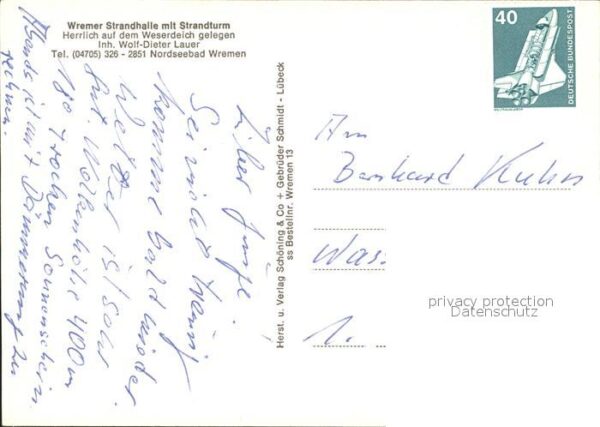 Wremer Strandhalle mit Strandturm
Herrlich auf dem Weserdeich gelegen
Inh. Wolf-Dieter Lauer
Tel. (04705) 326 - 2851 Nordseebad Wremen
Lieber Junge!
Sei nicht traurig
komme bald wieder.
Wetter ist sehr
gut. Wolkenhöhe 400m
18° trocken Sonnenschein
Abends ist mit Dämmerung zu
rechnen.
Herst. u. Verlag Schöning & Co + Gebrüder Schmidt - Lübeck
ss Bestellnr. Wremen 13
40
DEUTSCHE BUNDESPOST
An
Bernhard Kuhn
Was
1.
privacy protection
Datenschutz